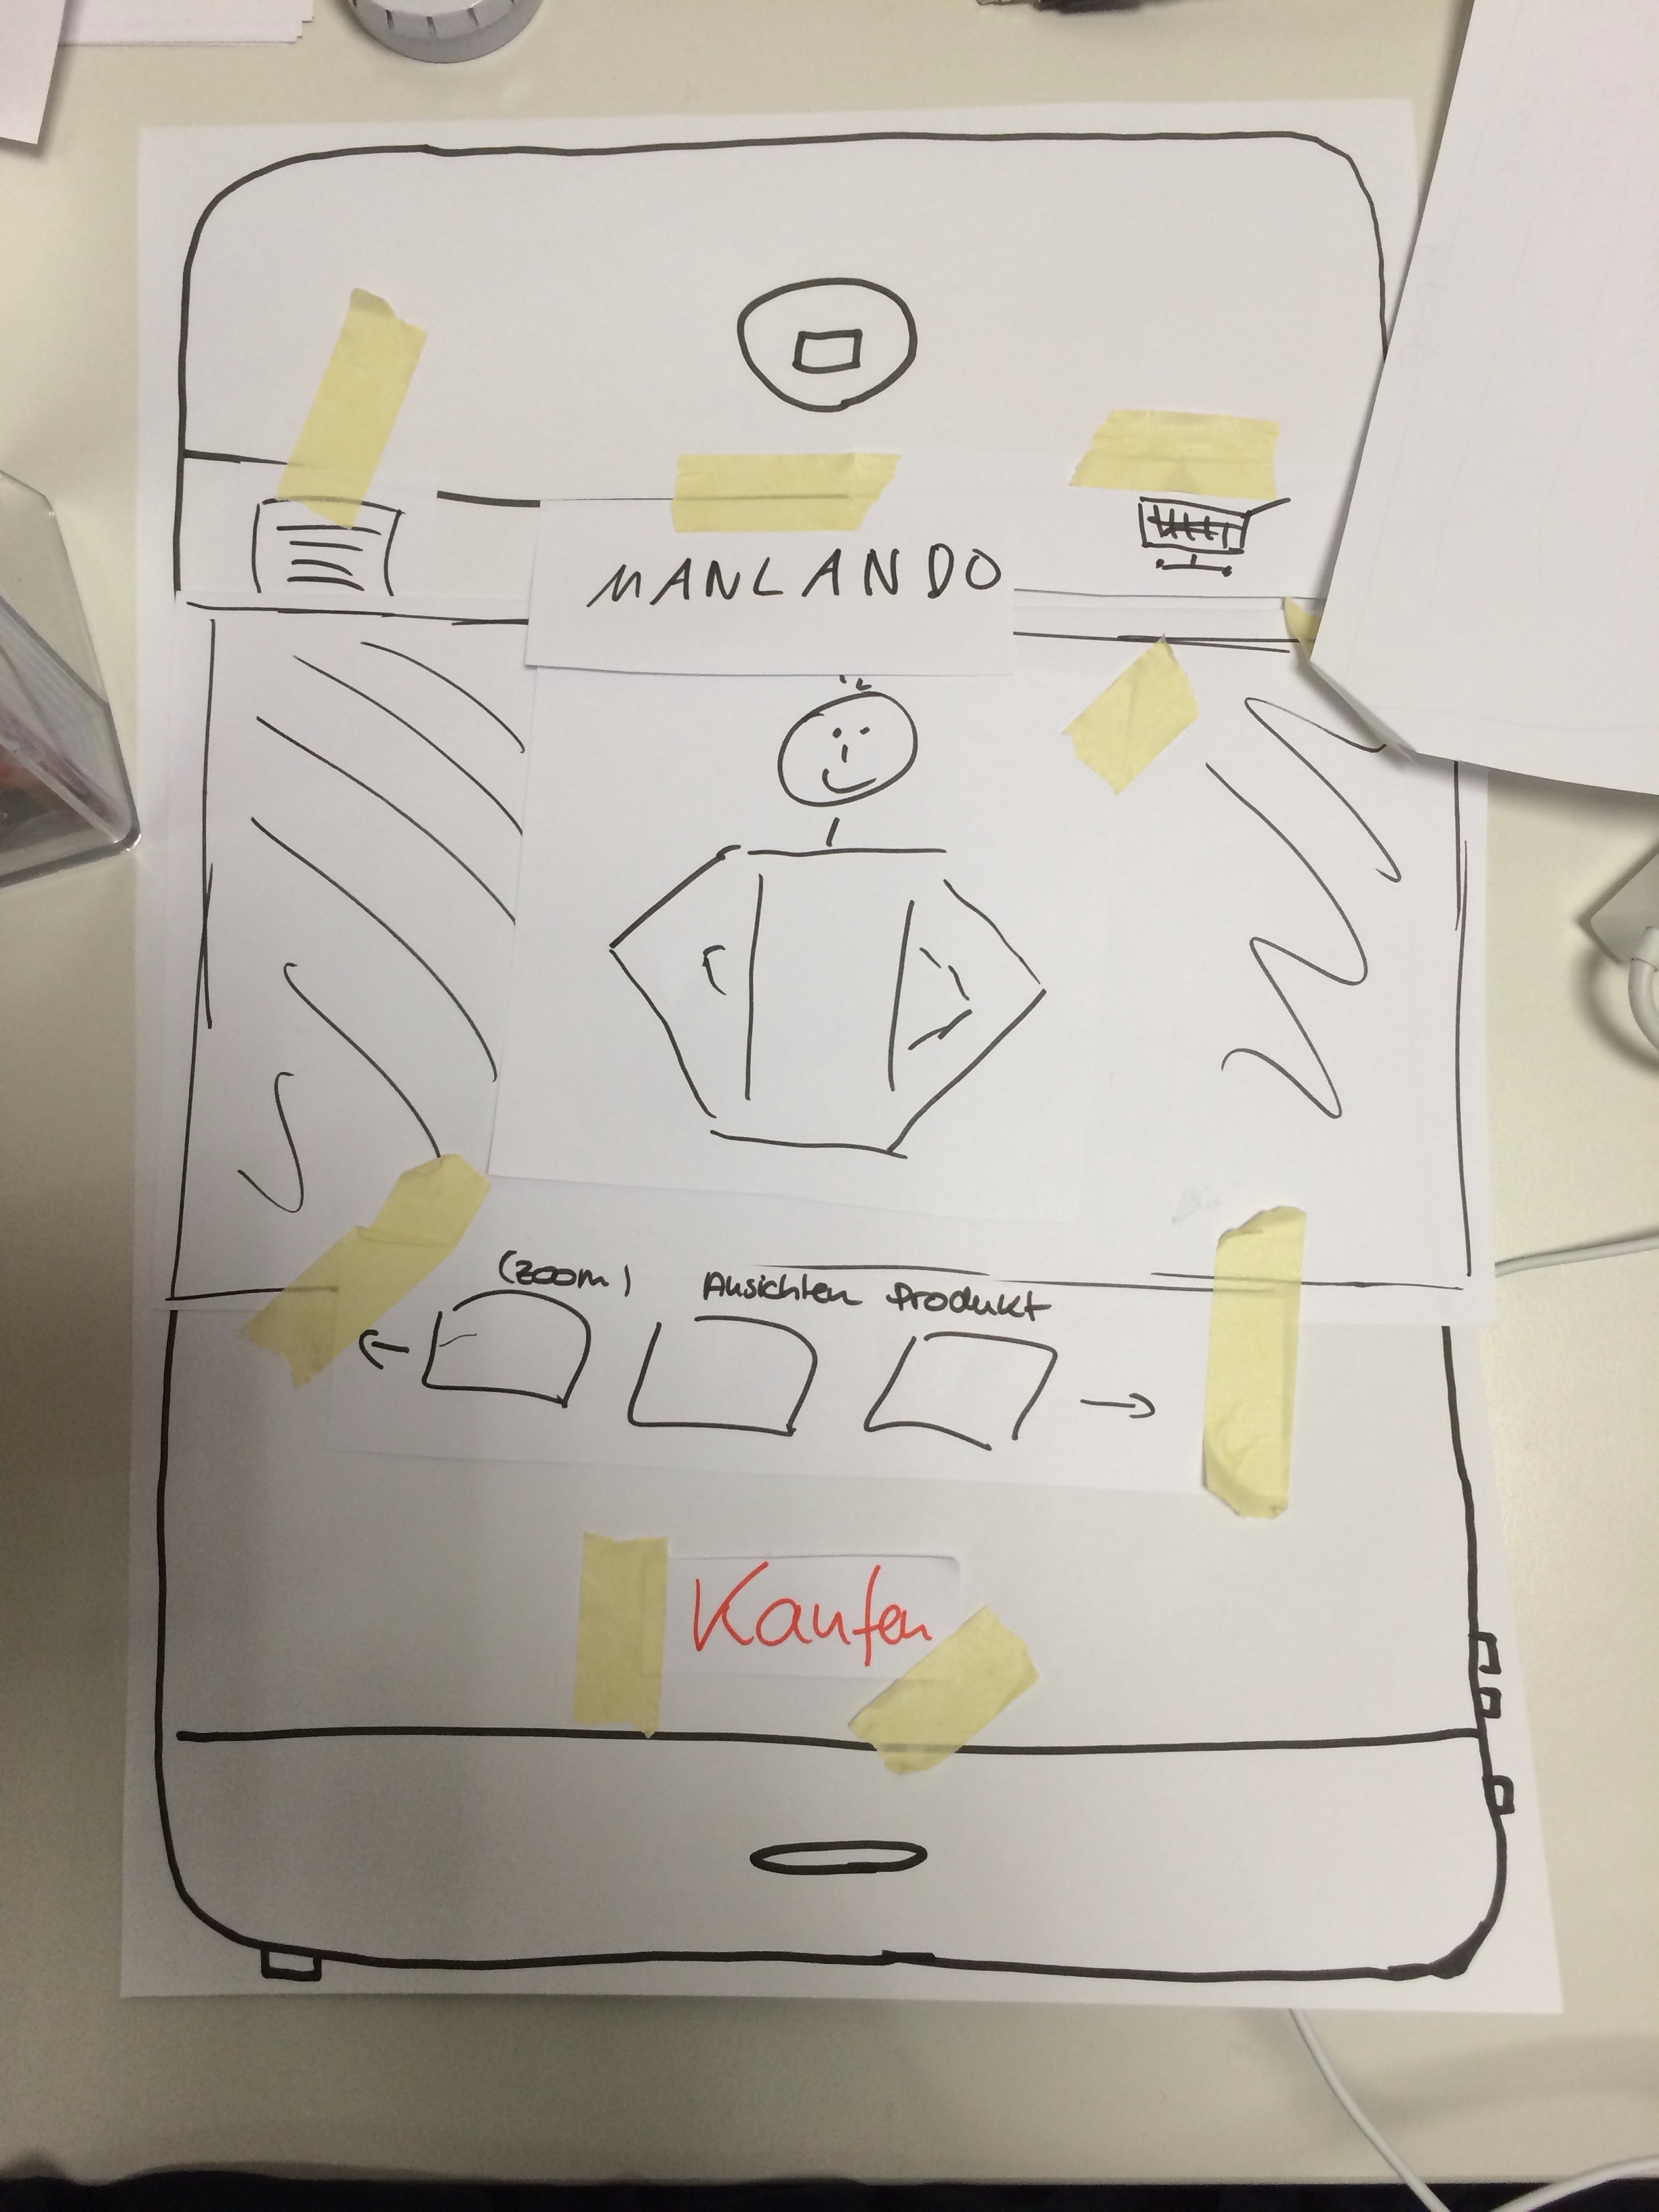 MANLANDO
(zoom) Ansichten Produkt
Kaufen